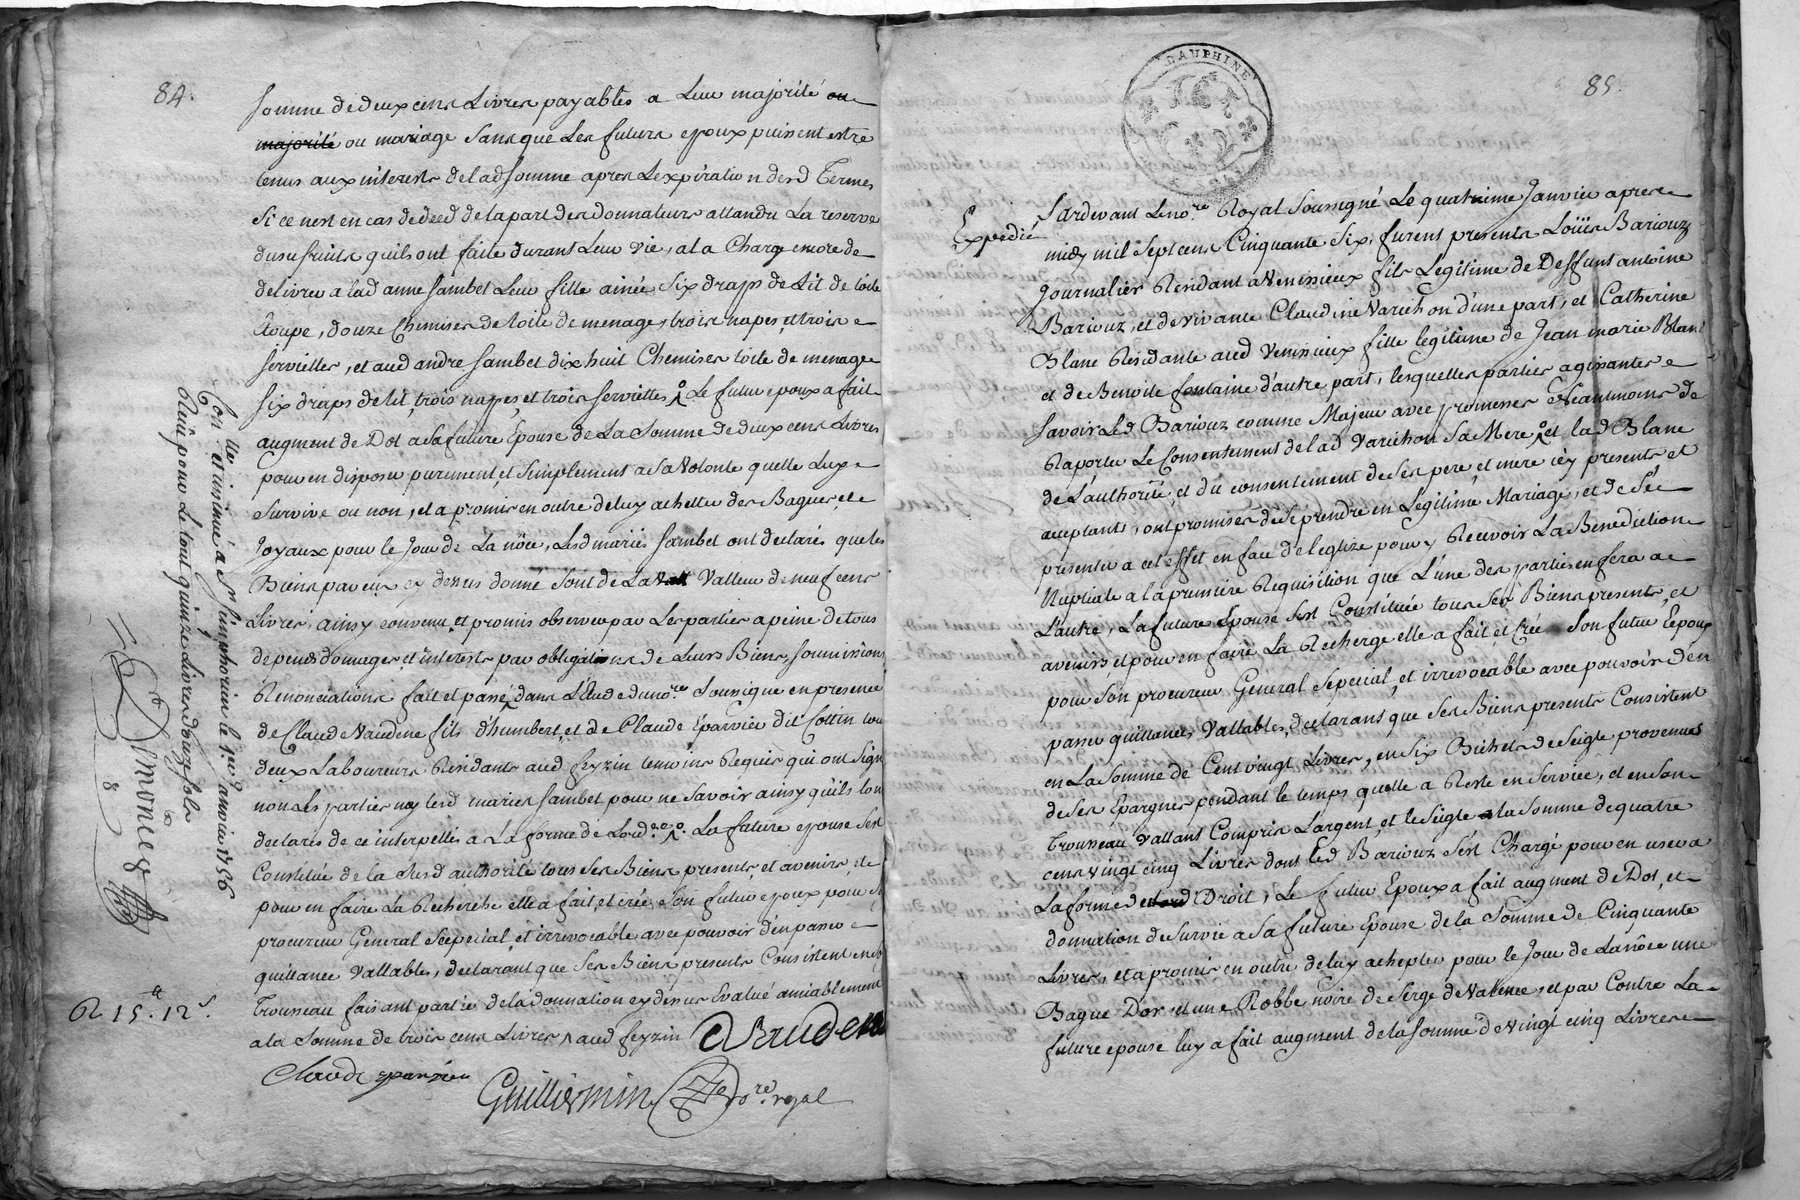 84.
somme de deux cens Livres payables a Leur majorité ou
majorité ou mariage sans que Les futurs epoux puissent estre
tenus aux interests de lad somme apres L'expiration desd Termes
Si ce n'est en cas de deced de la part des donnateurs attandu La reserve
dusufruits quils ont faite durant Leur vie, a la Charge encore de
delivrer a lad anne Sambet Leur fille ainée Six draps de Lit de toile
Etoupe, douze Chemises de toile de menage, trois napes, et trois
serviettes, et aud andre Sambet dix huit Chemises toile de menage
six draps de lit, trois nappes, et trois serviettes, Le futur epoux a fait
augment de Dot a sa future Epouse de La somme de deux cens Livres
pour en disposer purement, et simplement a sa volonte quelle Luy
Survive ou non, et a promis en outre de luy achetter des Bagues, et
Joyaux pour le Jour de La nôce, Lesd mariés Sambet ont declarés que les
Biens par eux cy dessus donné sont de La Valleur de neuf cens
Livres, ainsy convenu, et promis observer par Les parties a peine de tous
depends domages, et interests par obligations de Leurs Biens, soumissions
Renonciations fait et passé dans L'Etude du nore Soussigne en presence
de Claude Vaudene fils d'humbert, et de Claude Eparvier dit Cottin tous
deux Laboureurs Residants aud feyzin temoins Requis qui ont Signé
non Les parties ny lesd mariés Sambet pour ne Savoir ainsy quils l'ont
declarés de ce interpellés a La forme de Lord.ce La future epouse s'est
Constitué de la Susd authorité tous ses Biens presents, et avenirs, et
pour en faire La Recherche elle a fait, et crée Son futur epoux pour
procureur General Seepecial, et irrevocable avec pouvoir d'en passer
quittance Vallables, declarant que ses Biens presents Consistent en
trousseau faisant partie de la donnation cy dessus Evalué amiablement
a la Somme de trois cens Livres, aud feyzin C Vaudene
Claude eparvier
Guilliermin nore royal
Con.lle et insinué a St Simphorien le 1er Janvier 1756
Reçû pour Le tout quinze Livres douze sols
Simonet
R 15.# 12s.
DAUPHINE
85.
Expedié
Pardevant Le nore Royal Soussigné Le quatrieme Janvier apres
midy mil Sept cens Cinquante Six, furent presents Loüis Bariouz
Journalier Residant a Venissieux fils Legitime de Deffunt antoine
Bariouz, et de vivante Claudine Varichon d'une part, et Catherine
Blanc Residante aud Venissieux fille legitime de Jean marie Blanc
et de Benoite fontaine d'autre part, lesquelles parties agissantes
savoir Led Bariouz comme Majeur avec promesses Neantmoins de
Raporter Le Consentement de lad Varichon Sa Mere, et lad Blanc
de L'authorité, et du consentement de Ses pere, et mere icy presents et
aceptants, ont promises de Se prendre en Legitime Mariage, et de Se
presenter a cet effet en face de l'eglize pour y Recevoir La Benediction
Nuptiale a la premiere Requisition que L'une des parties en fera a
L'autre, La future Epouse s'est Constituée tous ses Biens presents, et
avenirs et pour en faire La Recherge elle a fait, et Crée Son futur Epoux
pour Son procureur General Sepecial, et irrevocable avec pouvoir d'en
passer quittances, Vallables, declarant que Ses Biens presents Consistent
en La Somme de Cent vingt Livres, en six Bichets de Seigle provenues
de Ses Epargnes pendant le temps quelle a Resté en Service, et en son
trousseau vallant Compris L'argent, et le Seigle a la Somme de quatre
cens vingt cinq Livres dont Led Bariouz s'est Chargé pour en user a
La forme de Droit, Le futur Epoux a fait augment de Dot, et
donnation de Survie a Sa future Epouse de la Somme de Cinquante
Livres, et a promis en outre de luy achepter pour le Jour de La nôce une
Bague D'or, et une Robbe noire de Serge de Valence, et par Contre La
future epouse luy a fait augment de la somme de Vingt cinq Livres